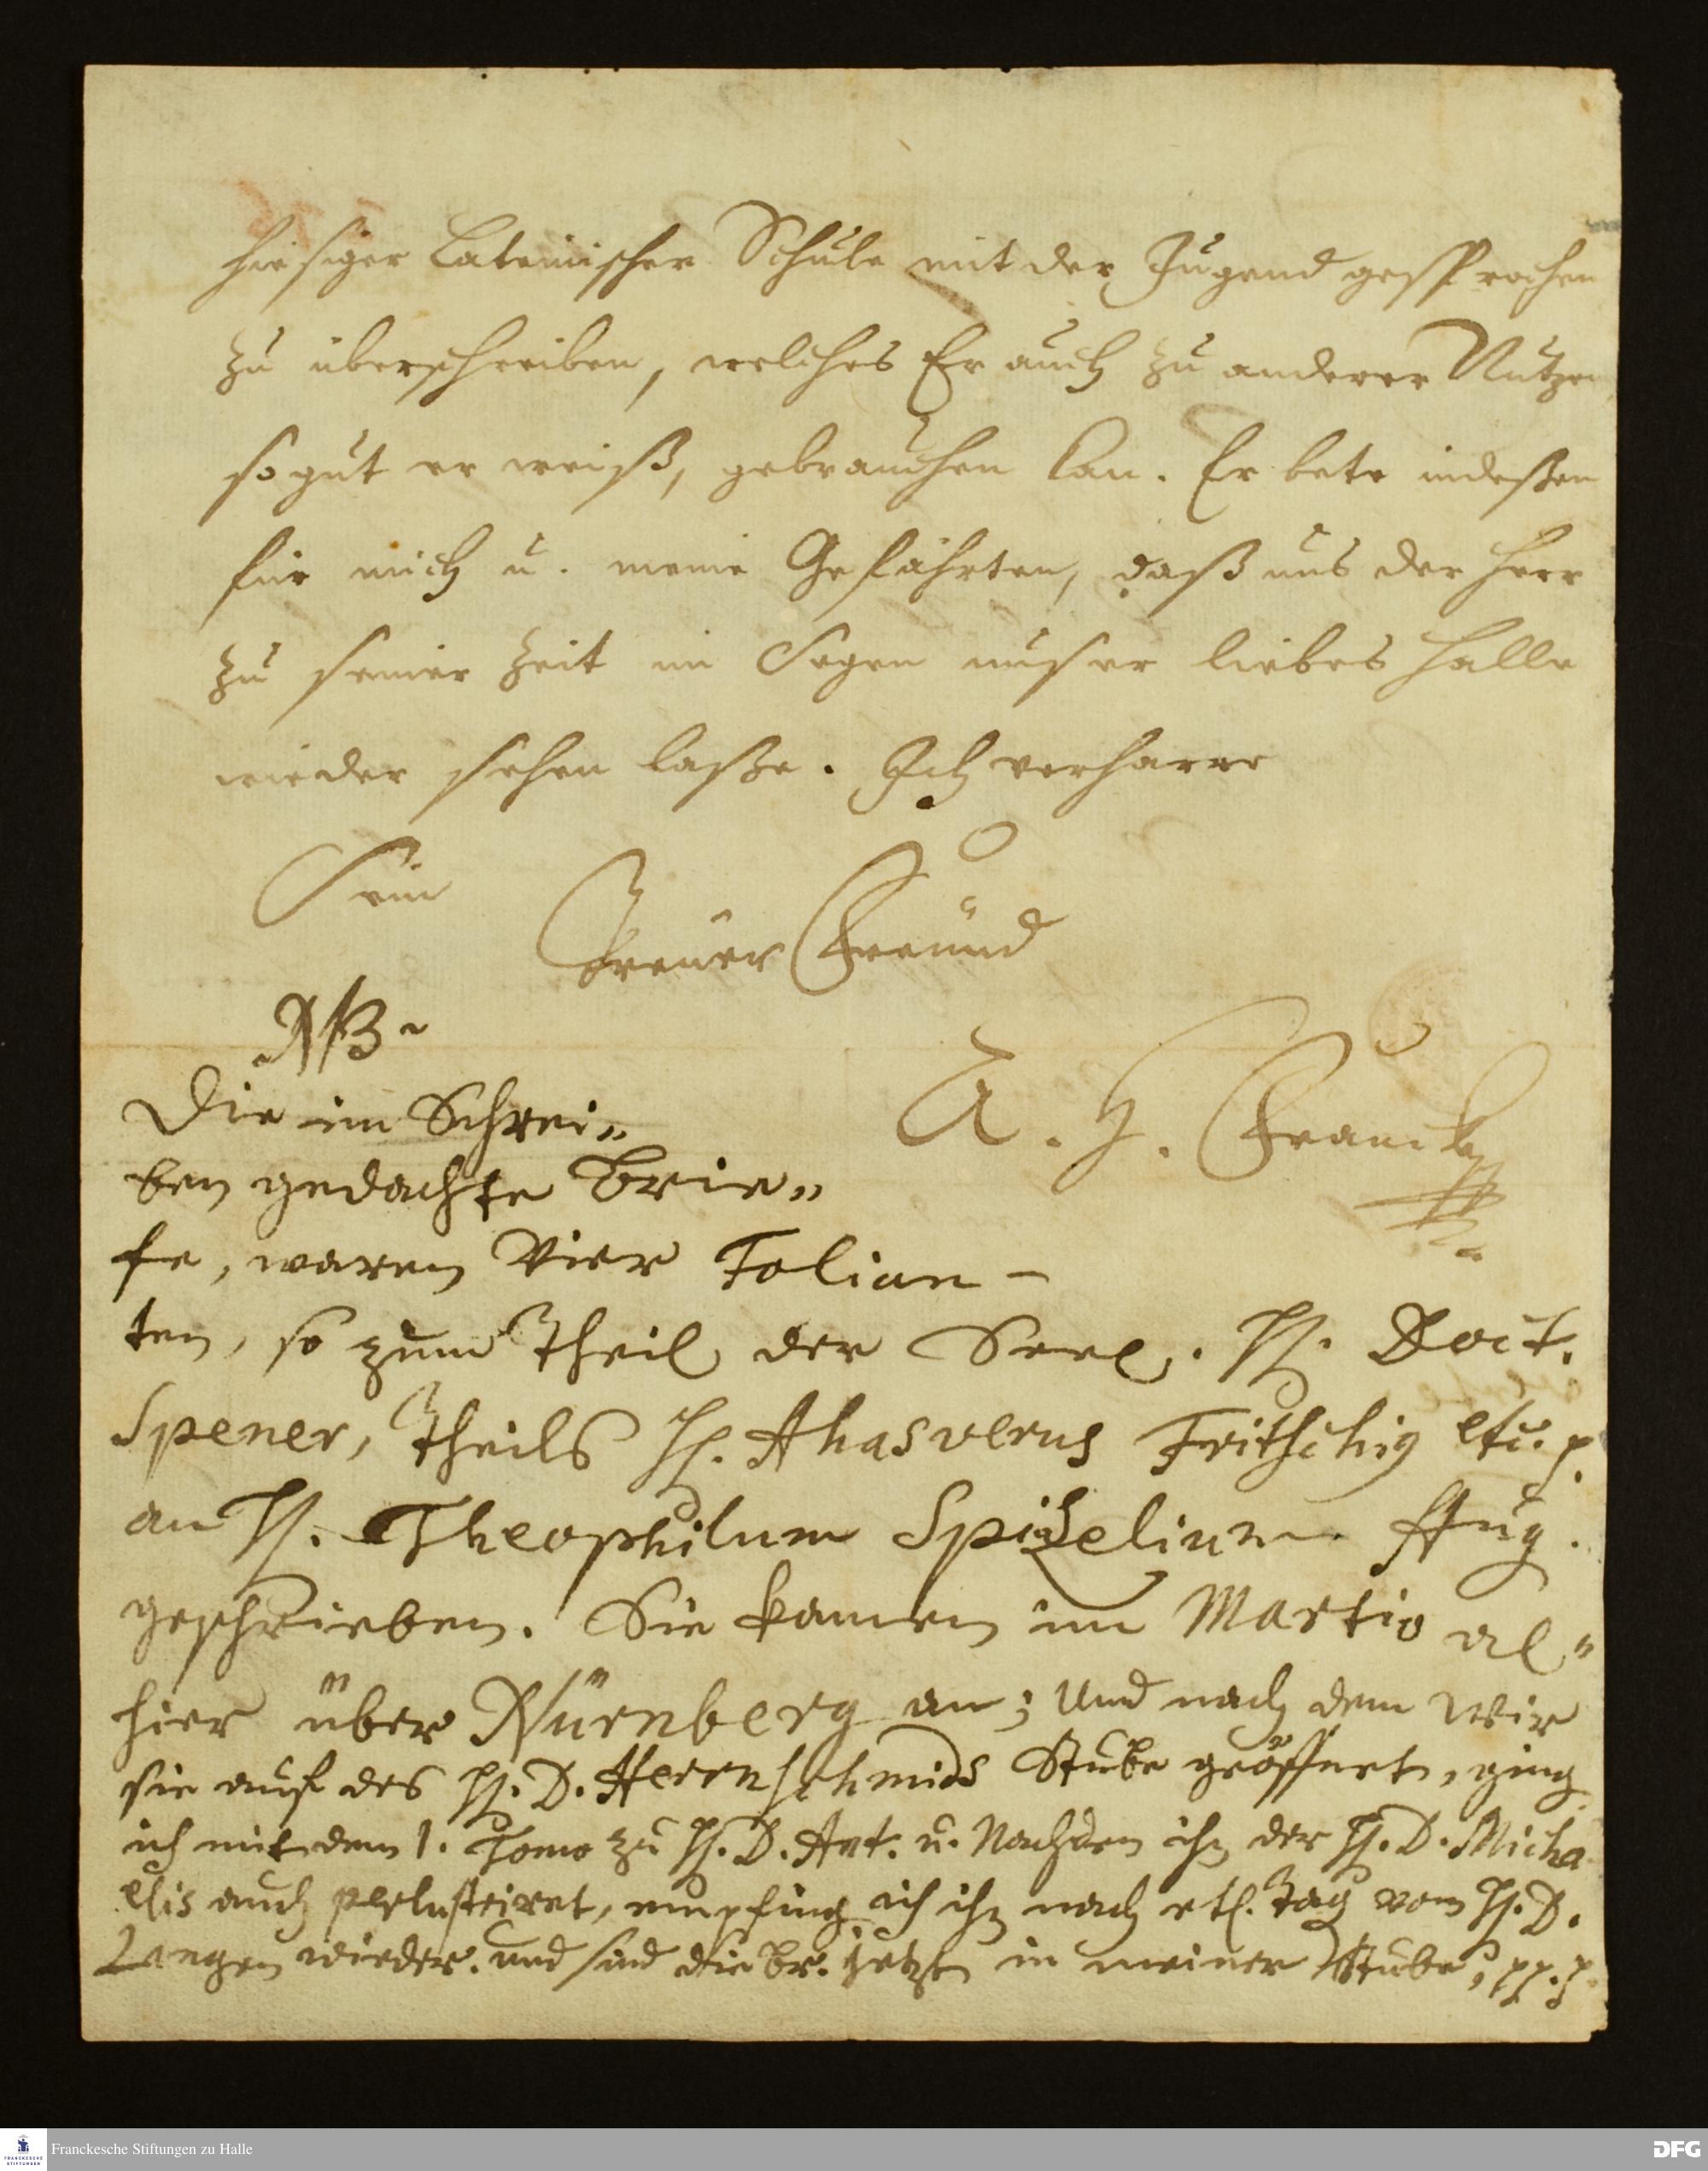 hiesiger Lateinischer Schule mit der Jugend gesprochen
zu überschreiben, welches Er auch zu anderer Nutzen
so gut er weiß, gebrauchen kan. Er bete indeßen
für mich u. meine Gefährten, daß uns der Herr
zu seiner Zeit im Segen unser liebes Halle
wieder sehen laße. Ich verharre
Sein
treuer Freund
A. H. Francke
Die im Schrei„
ben gedachte Brie„
fe, waren Vier Folian-
ten, so zum Theil der Seel. H. Doct.
Spener, Theils H. Ahasverus Fritschig etc. p.
an H. Theophilum Spizelium Aug.
geschrieben. Sie kamen im Martio al„
hier über Nürnberg an; Und nach dem Wir
sie auf des H. D. Herrnschmids Stube geöffnet, ging
ich mit dem 1. Tomo zu H. D. Ant. u. Nachdem ihn der H. D. Micha
elis auch perlustriret, empfing ich ihn nach etl. Tag vom H. D.
Langen wieder. und sind die br. jetzo in meiner Stube, pp. p.
Franckesche Stiftungen zu Halle
FRANCKESCHE
STIFTUNGEN
DFG